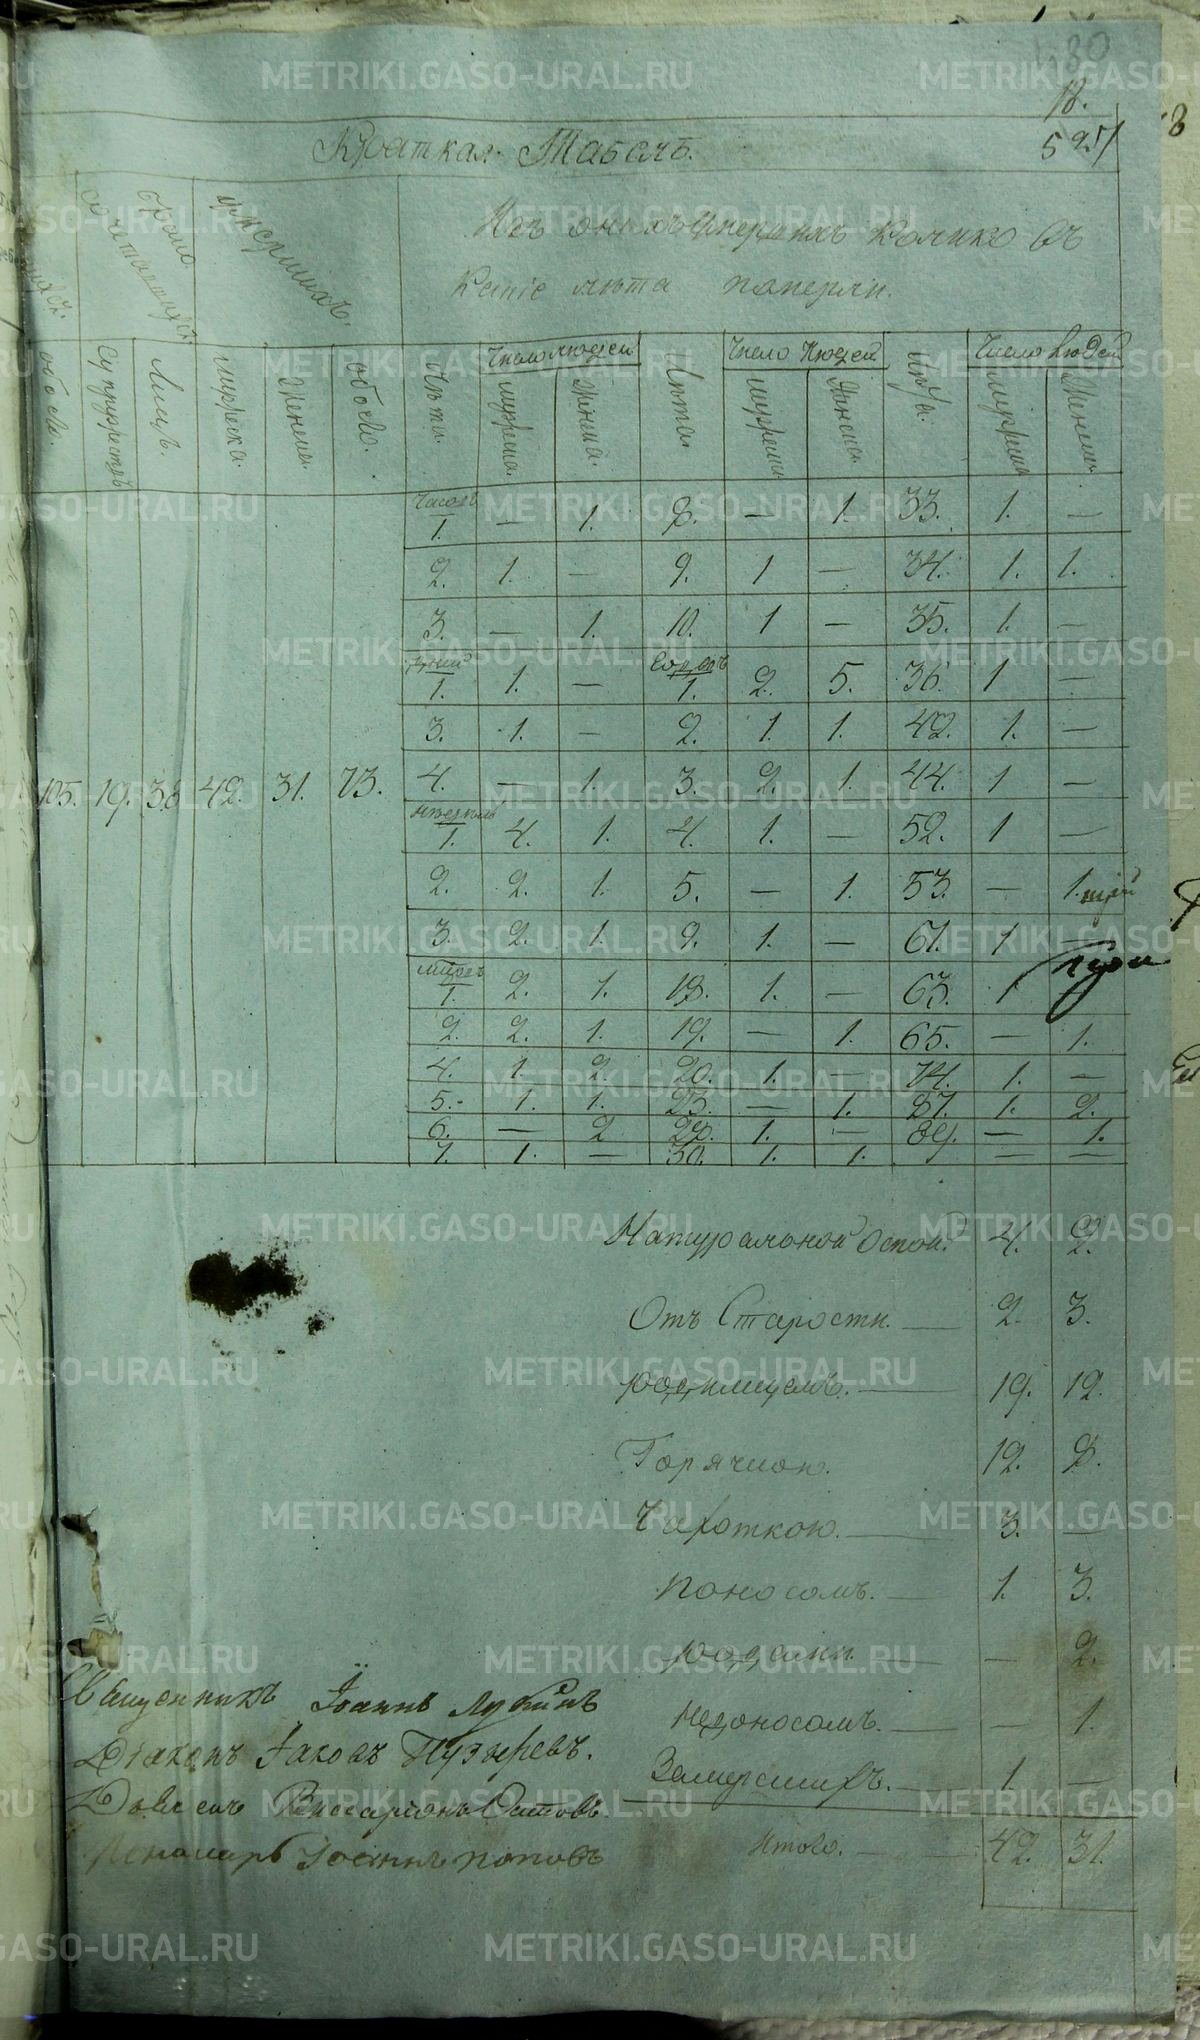 480
18.
595
Краткая Табель.
бракомъ сочетавшихся
умершихъ.
Изъ оныхъ умершихъ колико въ
кание лѣта померли.
обоего. Супружествъ Лицъ. мужеска. Женска. обоего. Лѣта. Число людей Лѣта. Число людей Лѣта Число людей
мужеска. Женска. мужеска. Женска. мужеска Женска.
Часовъ
1. — 1. 8. — 1. 33. 1. —
2. 1. — 9. 1 — 34. 1. 1.
3. — 1. 10. 1 — 35. 1. —
дней Годовъ
1. 1. — 1. 2. 5. 36. 1 —
3. 1. — 2. 1. 1. 42. 1. —
105. 19. 38 42. 31. 73. 4. — 1. 3. 2. 1. 44. 1 —
недѣль
1. 4. 1. 4. 1. — 52. 1 —
2. 2. 1. 5. — 1. 53. — 1.
3. 2. 1. 9. 1. — 61. 1 —
мѣсяцъ
1. 2. 1. 18. 1. — 63. 1
2. 2. 1. 19. — 1. 65. — 1.
4. 1. 2. 20. 1. — 74. 1. —
5. 1. 1. 25. — 1. 87. 1. 2.
6. — 2 28. 1. — 89. — 1.
7. 1. — 30. 1. 1. — —
Натуральной Оспой. 4. 2.
Отъ Старости. — 2. 3.
родимцемъ. — 19. 12.
Горячкою. 12. 8.
Чахоткою. — 3. —
поносомъ. — 1. 3.
родами. — — 2.
Недоносомъ. — — 1.
Замерзшихъ. — 1. —
Итого. — 42. 31.
Священникъ Іоаннъ Лубинъ
Діаконъ Іаковъ Пузыревъ.
Виссаріонъ
Пономарь Іоаннъ Поповъ
METRIKI.GASO-URAL.RU